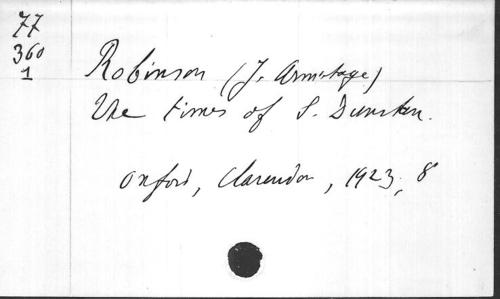 77
360
1
Robinson (J. Armitage)
The times of S. Dunstan.
Oxford, Clarendon, 1923, 8°